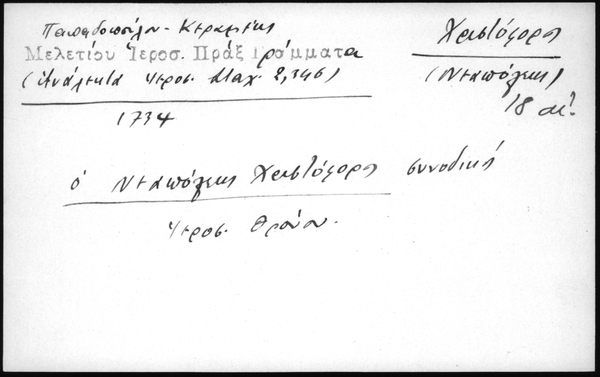 Παπαδοπούλου - Κεραμέως
Μελετίου Ἱεροσ. Πράξ γράμματα
(Ἀνάλεκτα Ἱεροσ. Σταχ. 2,346)
1734
Χριστόφορος
(Νεαπόλεως)
18 αἰ.
ὁ Νεαπόλεως Χριστόφορος συνοδικῶς
Ἱεροσ. Θρόνου.